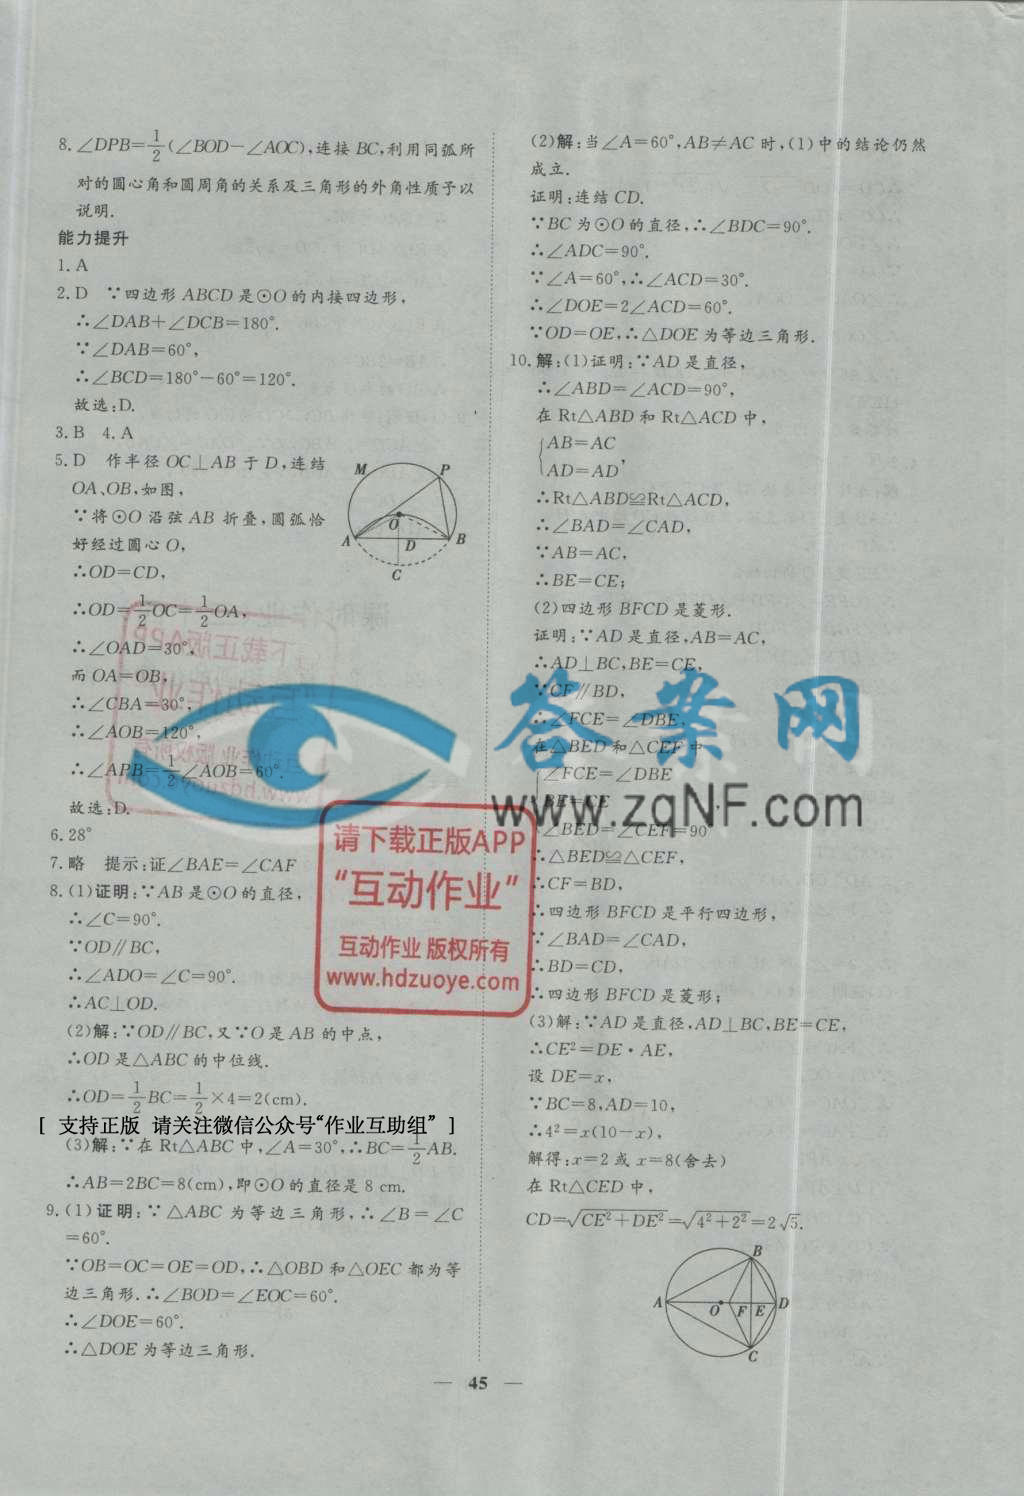 8. ∠DPB=1/2(∠BOD－∠AOC),连接 BC,利用同弧所
对的圆心角和圆周角的关系及三角形的外角性质予以
说明.
能力提升
1. A
2. D ∵四边形 ABCD 是⊙O 的内接四边形,
∴∠DAB+∠DCB=180°.
∵∠DAB=60°,
∴∠BCD=180°－60°=120°.
故选:D.
3. B 4. A
5. D 作半径 OC⊥AB 于 D,连结
OA、OB,如图,
∵将⊙O 沿弦 AB 折叠,圆弧恰
好经过圆心 O,
∴OD=CD,
∴OD=1/2OC=1/2OA,
∴∠OAD=30°,
而 OA=OB,
∴∠CBA=30°,
∴∠AOB=120°,
∴∠APB=1/2∠AOB=60°.
故选:D.
6. 28°
7. 略 提示:证∠BAE=∠CAF
8. (1)证明:∵AB 是⊙O 的直径,
∴∠C=90°.
∵OD∥BC,
∴∠ADO=∠C=90°.
∴AC⊥OD.
(2)解:∵OD∥BC,又∵O 是 AB 的中点,
∴OD 是△ABC 的中位线.
∴OD=1/2BC=1/2×4=2(cm).
[ 支持正版 请关注微信公众号“作业互助组” ]
(3)解:∵在 Rt△ABC 中,∠A=30°,∴BC=1/2AB.
∴AB=2BC=8(cm),即⊙O 的直径是 8 cm.
9. (1)证明:∵△ABC 为等边三角形,∴∠B=∠C
=60°.
∵OB=OC=OE=OD,∴△OBD 和△OEC 都为等
边三角形.∴∠BOD=∠EOC=60°.
∴∠DOE=60°.
∴△DOE 为等边三角形.
M P O A D B C
(2)解:当∠A=60°,AB≠AC 时,(1)中的结论仍然
成立.
证明:连结 CD.
∵BC 为⊙O 的直径,∴∠BDC=90°.
∴∠ADC=90°.
∵∠A=60°,∴∠ACD=30°.
∴∠DOE=2∠ACD=60°.
∵OD=OE,∴△DOE 为等边三角形.
10. 解:(1)证明:∵AD 是直径,
∴∠ABD=∠ACD=90°,
在 Rt△ABD 和 Rt△ACD 中,
{AB=AC
AD=AD,
∴Rt△ABD≌Rt△ACD,
∴∠BAD=∠CAD,
∵AB=AC,
∴BE=CE;
(2)四边形 BFCD 是菱形.
证明:∵AD 是直径,AB=AC,
∴AD⊥BC,BE=CE,
∵CF∥BD,
∴∠FCE=∠DBE,
在△BED 和△CEF 中
∠FCE=∠DBE
BE=CE
∠BED=∠CEF=90°
∴△BED≌△CEF,
∴CF=BD,
∴四边形 BFCD 是平行四边形,
∵∠BAD=∠CAD,
∴BD=CD,
∴四边形 BFCD 是菱形;
(3)解:∵AD 是直径,AD⊥BC,BE=CE,
∴CE²=DE·AE,
设 DE=x,
∵BC=8,AD=10,
∴4²=x(10－x),
解得:x=2 或 x=8(舍去)
在 Rt△CED 中,
CD=√(CE²+DE²)=√(4²+2²)=2√5.
B A O F E D C
答案网
www.zqNF.com
请下载正版APP
“互动作业”
互动作业 版权所有
www.hdzuoye.com
— 45 —